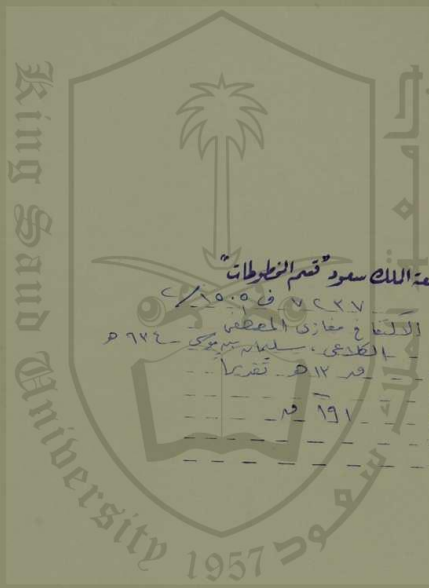 King Saud University
1957
جامعة الملك سعود "قسم المخطوطات"
٧٢٣٧ ف ١٥٠٥/٢
الاكتفا في مغازي المصطفى
الكلاعي، سليمان بن موسى - ٦٣٤ هـ
ق ١٢ هـ تقديرا
١٩١ ق